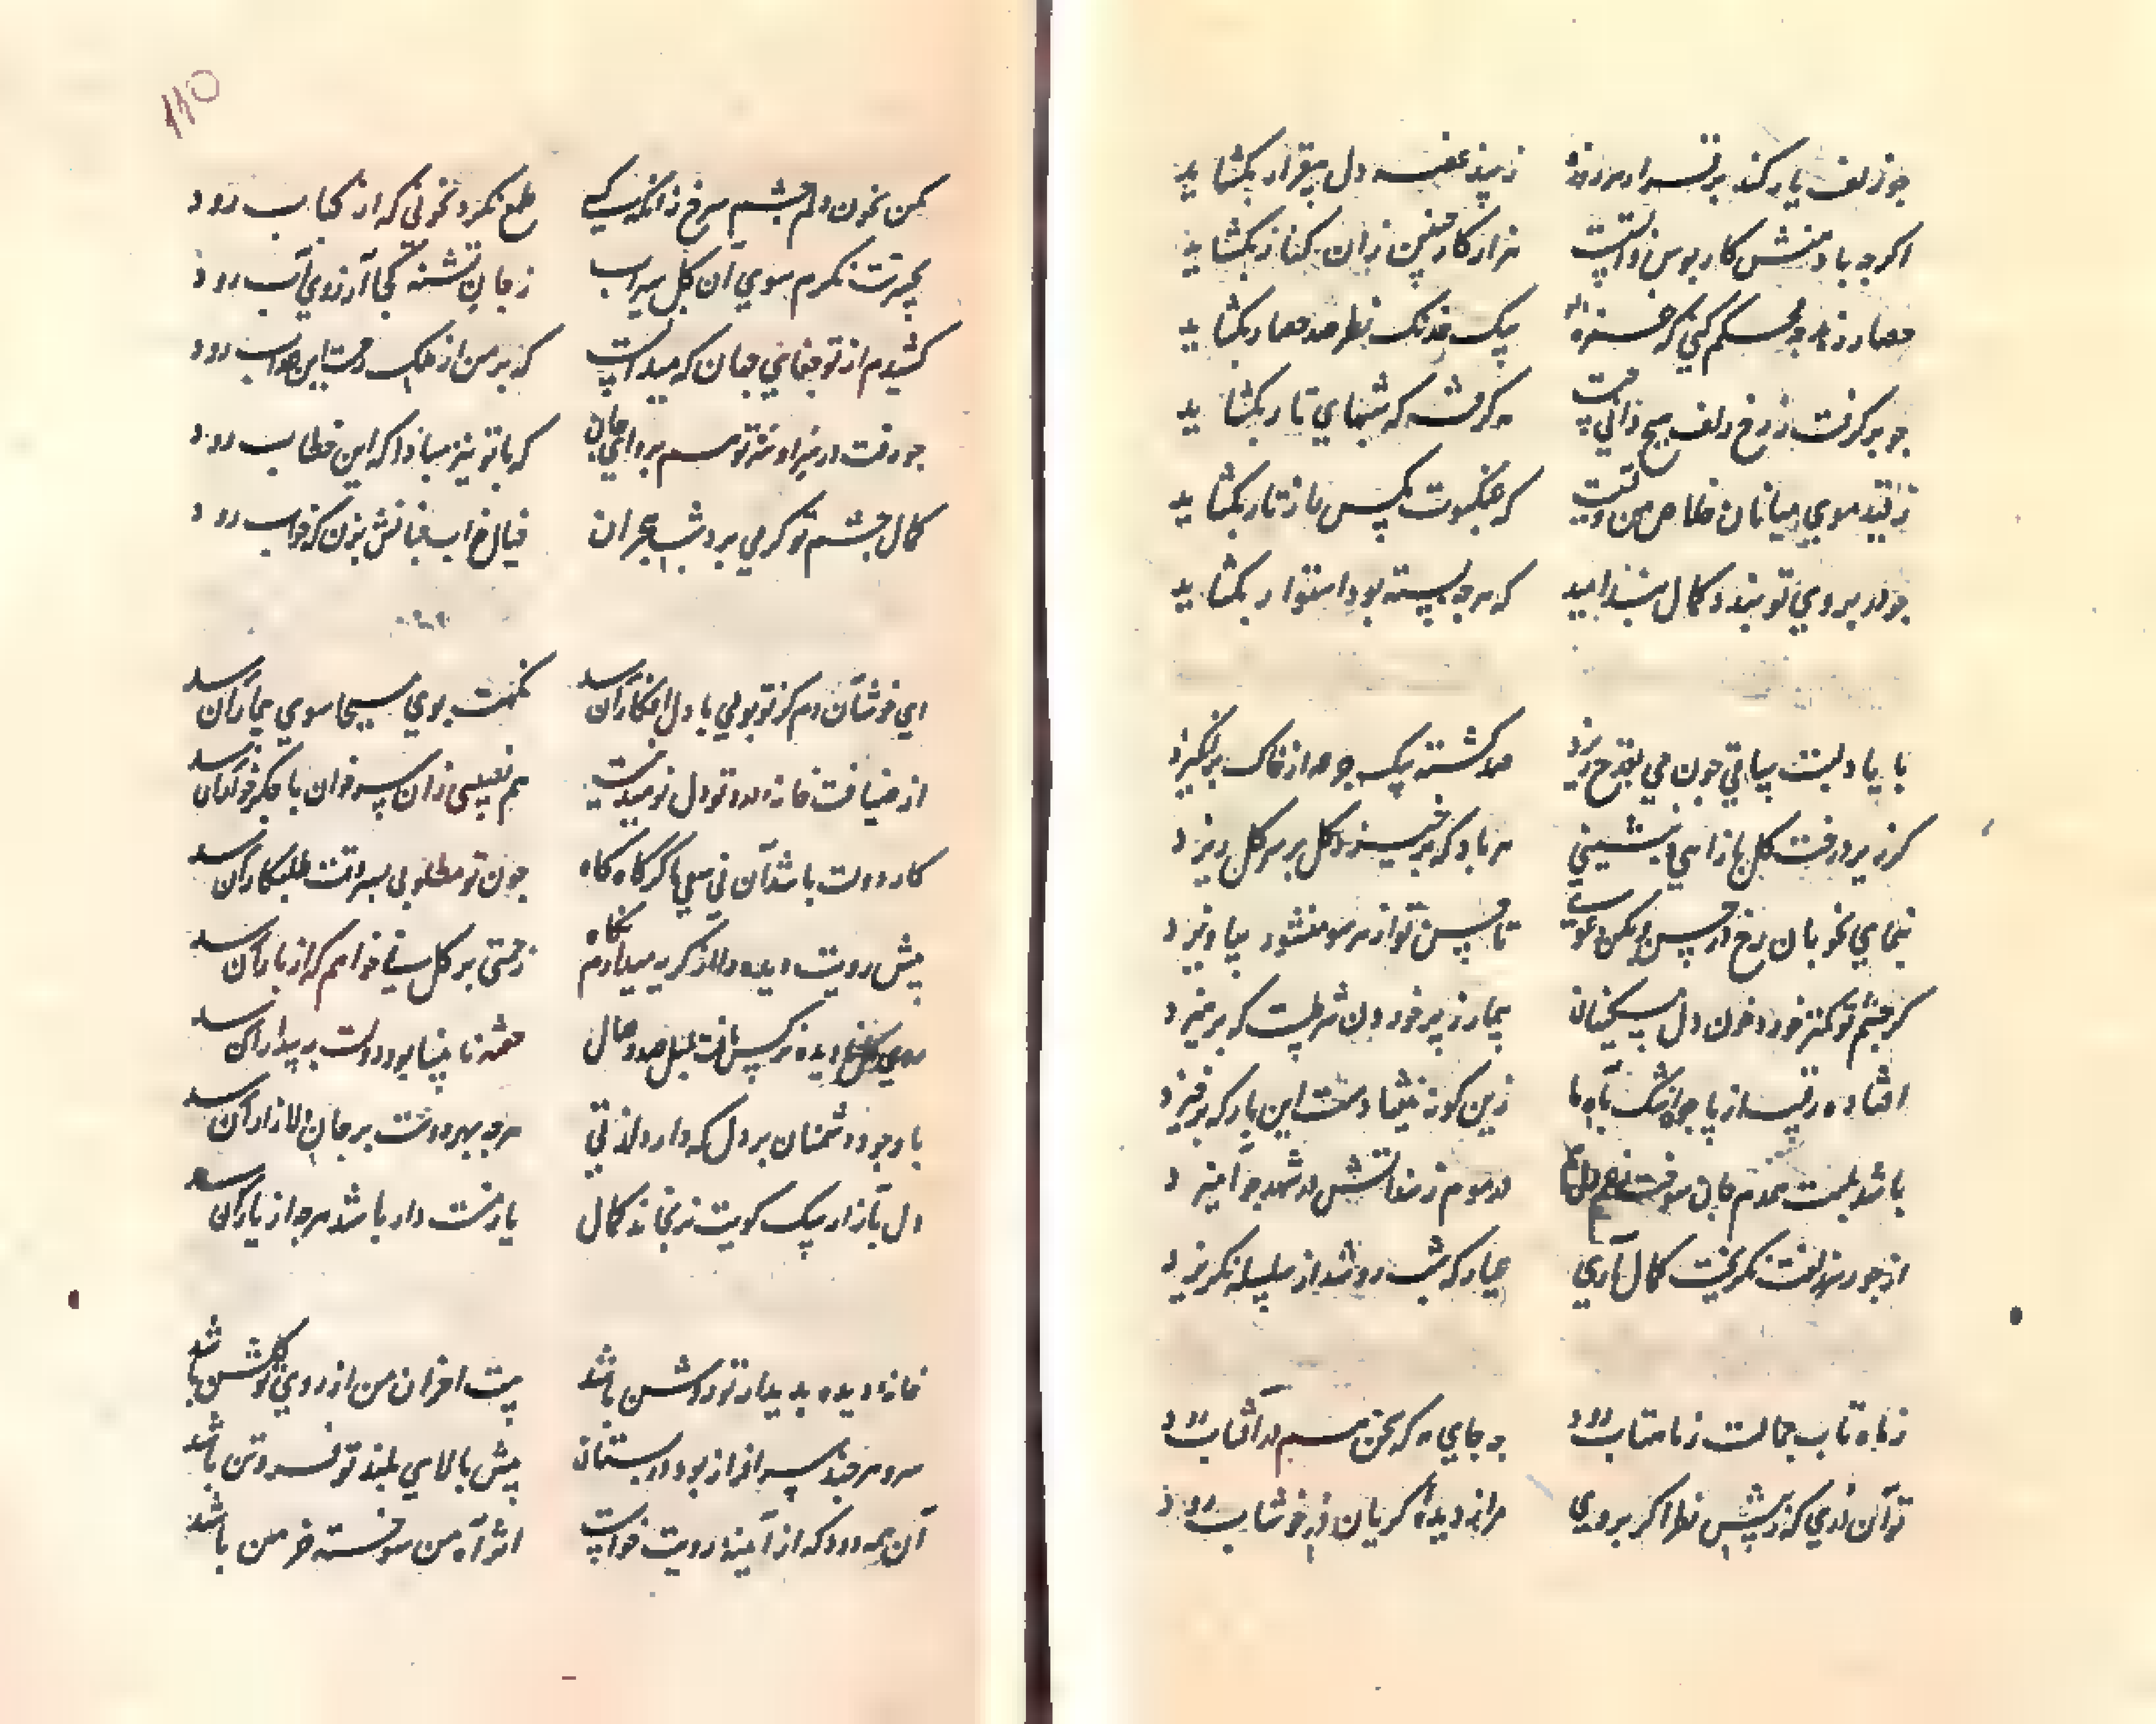 چو زلف یار کند بر قرار مرزه ز پیذ غصه دل بیقرار بکشاید
اگرچه با دهنش کار بوس هزار کار چنین زان کنار بکشاید
حصار زهد چو محکم کنی که غمزه بیک خدنک نظر صد حصار بکشاید
چو برگرفت ز رخ زلف صبح دانی چیست مه گرفته که شبهای تار بکشاید
ز قید موی میانان خلاص من وقتیست که عنکبوت مکس را ز تار بکشاید
چو در بروی تو بندد کمال بند امید که هرچه بسته بود استوار بکشاید
با یاد لبت ساقی چون می بقدح ریزد صد کشته بیک جرعه از خاک برانگیزد
گر زیر درخت گل بازآیی و بنشینی هر باد که برخیزد گل بر سر گل ریزد
بنمای بخوبان رخ در حسن تا حسن تو از هر سو منشور بیاویزد
گر چشم تو کمتر خورد خون دل مسکینان بیمار ز پر خوردن شرطست که پرهیزد
افتاده رقیب از پا چون اشک باه ما زین گونه بیفتادست این بار که برخیزد
باشد بلبت همدم جان در سوم ز تنها تنش در شهد چو آمیزد
از جور سر زلفت نکریخت کمال آری عیار که شب رو شد از سلسله نکریزد
ز ماه تاب جمالت ز ماهتاب رود چه جای مه که سخن هم در آفتاب رود
تو آن دری که ز پیش نظر اگر بروی مرا ز دیده گریان در خوشاب رود
مکن بخون دلم چشم سرخ زانکه کسی طمع نکرد بخونی که از کباب رود
بحیرت نکرم سوی آن گل سیراب ز جان تشنه کجا آرزوی آب رود
کشیدم از تو جفای جهان که میدانست که بر من از فلک این عذاب رود
چو رفت در سر او سر تو هم برو ای جان که با تو نیز مبادا که این خطاب رود
کمال چشم تو گر می برد شب هجران خیال خواب خیالش بزن که خواب رود
ای خوش آن دم کز تو بویی با دل افکاران رسد نکهت بوی مسیحا سوی بیماران رسد
از ضیافت خانه درد تو دل نومید نیست هم نصیبی زان سر خوان با جگرخواران رسد
کار دولت باشد آن نی سعی ما گر گاه گاه چون تو مطلوبی بسر وقت طلبکاران رسد
پیش رویت دیده را از گریه میدارم نگاه زحمتی بر گل نمیخواهم که از باران رسد
روی گل نادیده نرکس یافت بلبل صد وصال خفته نابینا بود دولت به بیداران رسد
با وجود دشمنان بر دل که دارد لذتی هرچه بهر دوست بر جان دلازاران رسد
دل بازار سک کویت نرنجاند کمال یار منت دار باشد هرچه از یاران رسد
خانه دیده بدیدار تو روشن باشد بیت احزان من از روی تو گلشن باشد
سرو هرچند سرافراز بود در بستان پیش بالای بلند تو فروتن باشد
آن همه دود که از آینه رویت خواست اثر آه من سوخته خرمن باشد